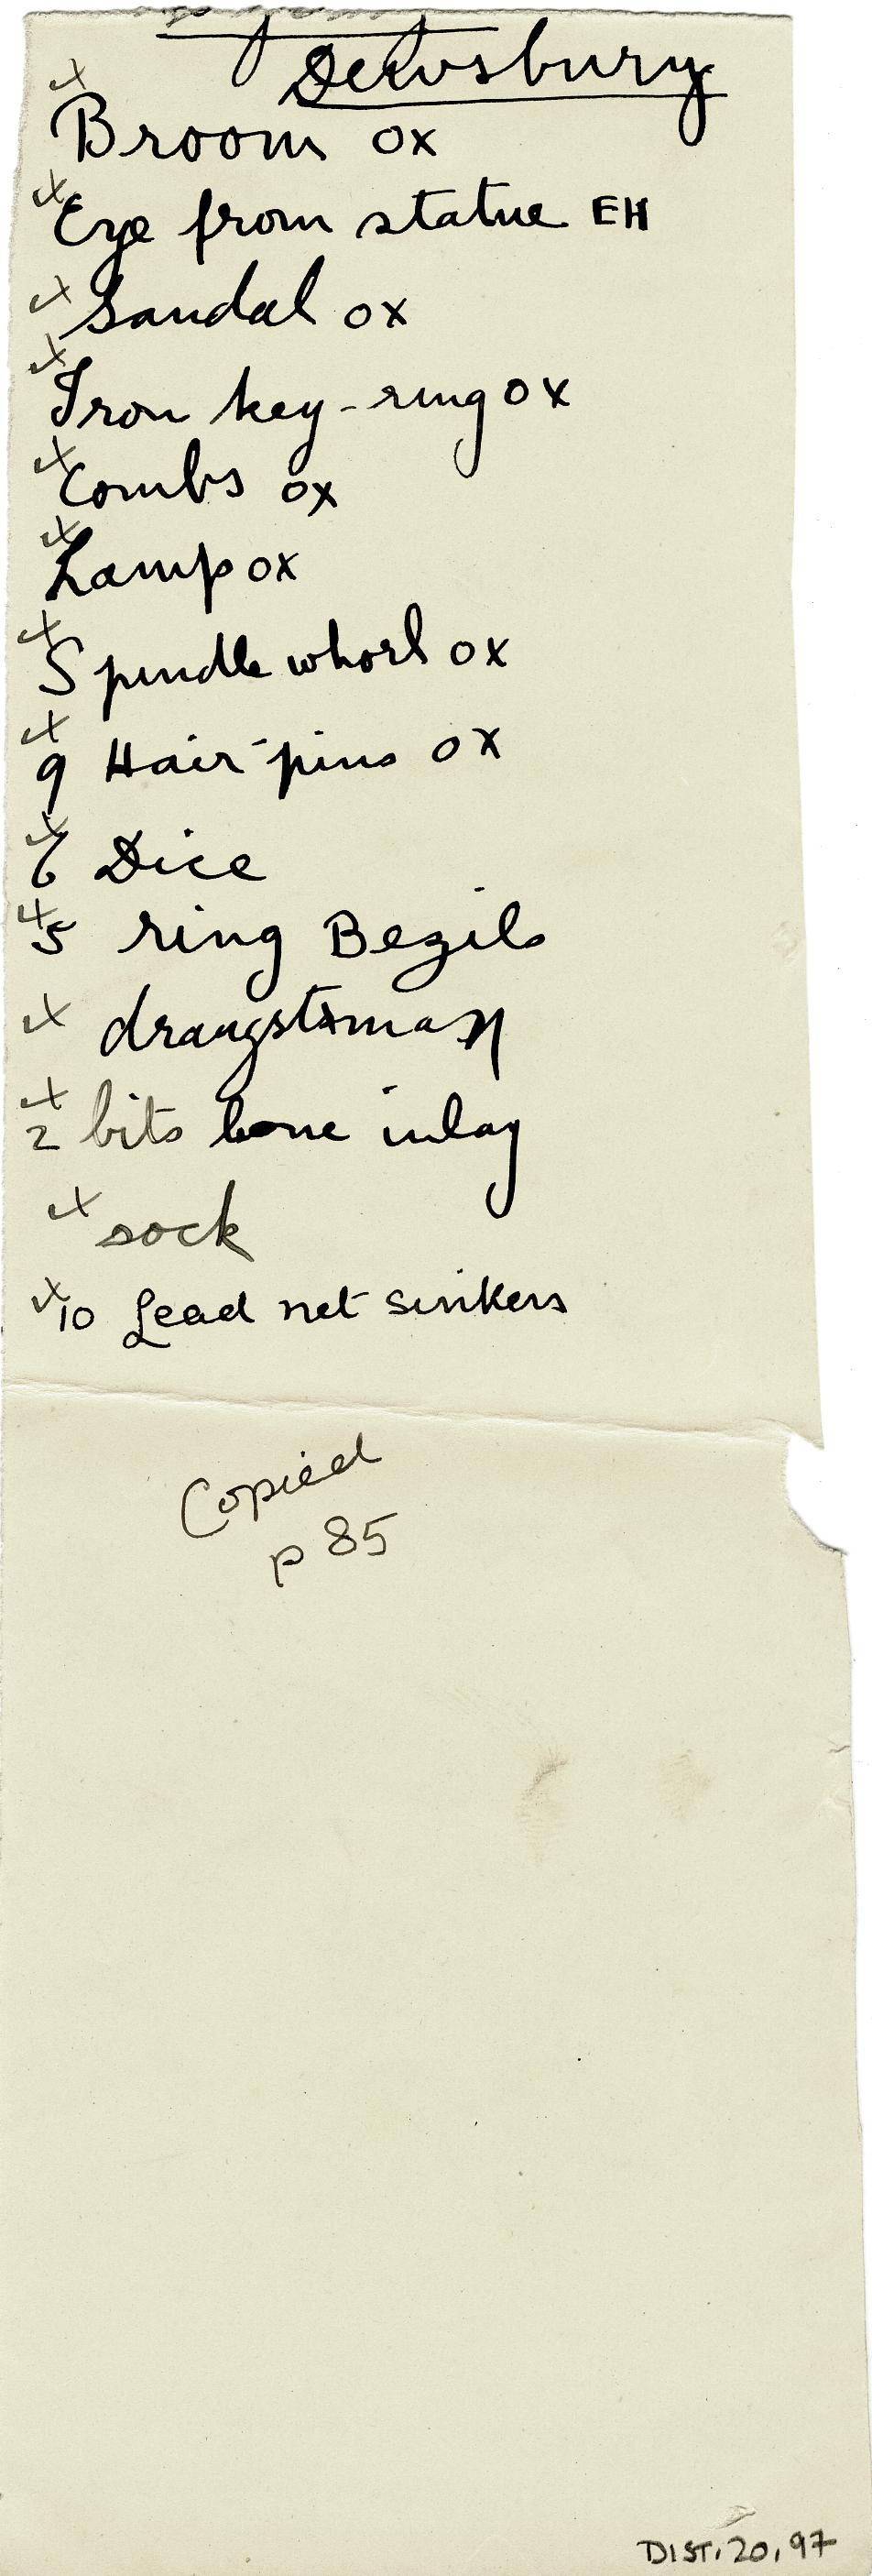 Dewsbury
Broom ox
Eye from statue EH
Sandal ox
Iron key-ring ox
Combs ox
Lamp ox
Spindle whorl ox
9 Hair-pins ox
6 Dice
5 ring Bezils
draugstman
2 bits bone inlay
sock
10 Lead net sinkers
Copied
p 85
DIST.20.97